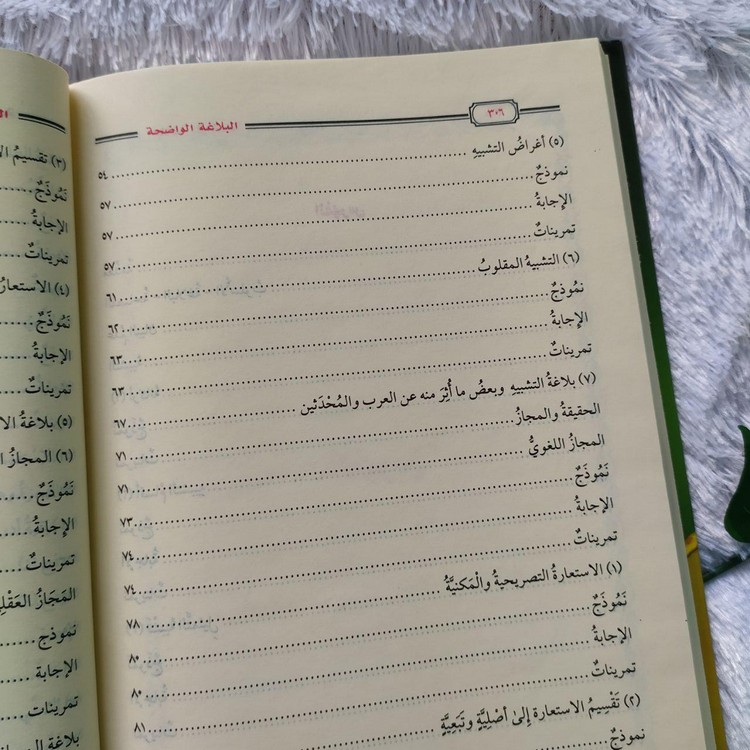 ٣٠٦ البلاغة الواضحة
(٥) أغراضُ التشبيهِ ... ٥٤
نموذجٌ ... ٥٧
الإجابةُ ... ٥٧
تمريناتٌ ... ٥٧
(٦) التشبيهُ المقلوبُ ... ٦١
نموذجٌ ... ٦٢
الإجابةُ ... ٦٣
تمريناتٌ ... ٦٣
(٧) بلاغةُ التشبيهِ وبعضُ ما أُثِرَ منه عن العرب والمُحْدَثين ... ٦٧
الحقيقةُ والمجازُ ... ٧١
المجازُ اللغويُّ ... ٧١
نَمُوذَجٌ ... ٧٣
الإجابةُ ... ٧٤
تمريناتٌ ... ٧٤
(١) الاستعارةُ التصريحيةُ والْمَكنيَّةُ ... ٧٨
نَمُوذَجٌ ... ٨٠
الإجابةُ ... ٨٠
تمريناتٌ ... ٨١
(٢) تَقْسِيمُ الاستعارة إلىٰ أَصْلِيَّةٍ وتَبَعِيَّةٍ ...
نموذجٌ ...
(٣) تقسيمُ
نَمُوذَجٌ
الإجابةُ
تمريناتٌ
(٤)
نَمُوذَجٌ
الإجابةُ
تمريناتٌ
(٥) بلاغةُ
(٦) المجازُ
نَمُوذَجٌ
الإجابةُ
تمريناتٌ
المَجَازُ
نموذج
الإجابة
تمرينات
بلاغة